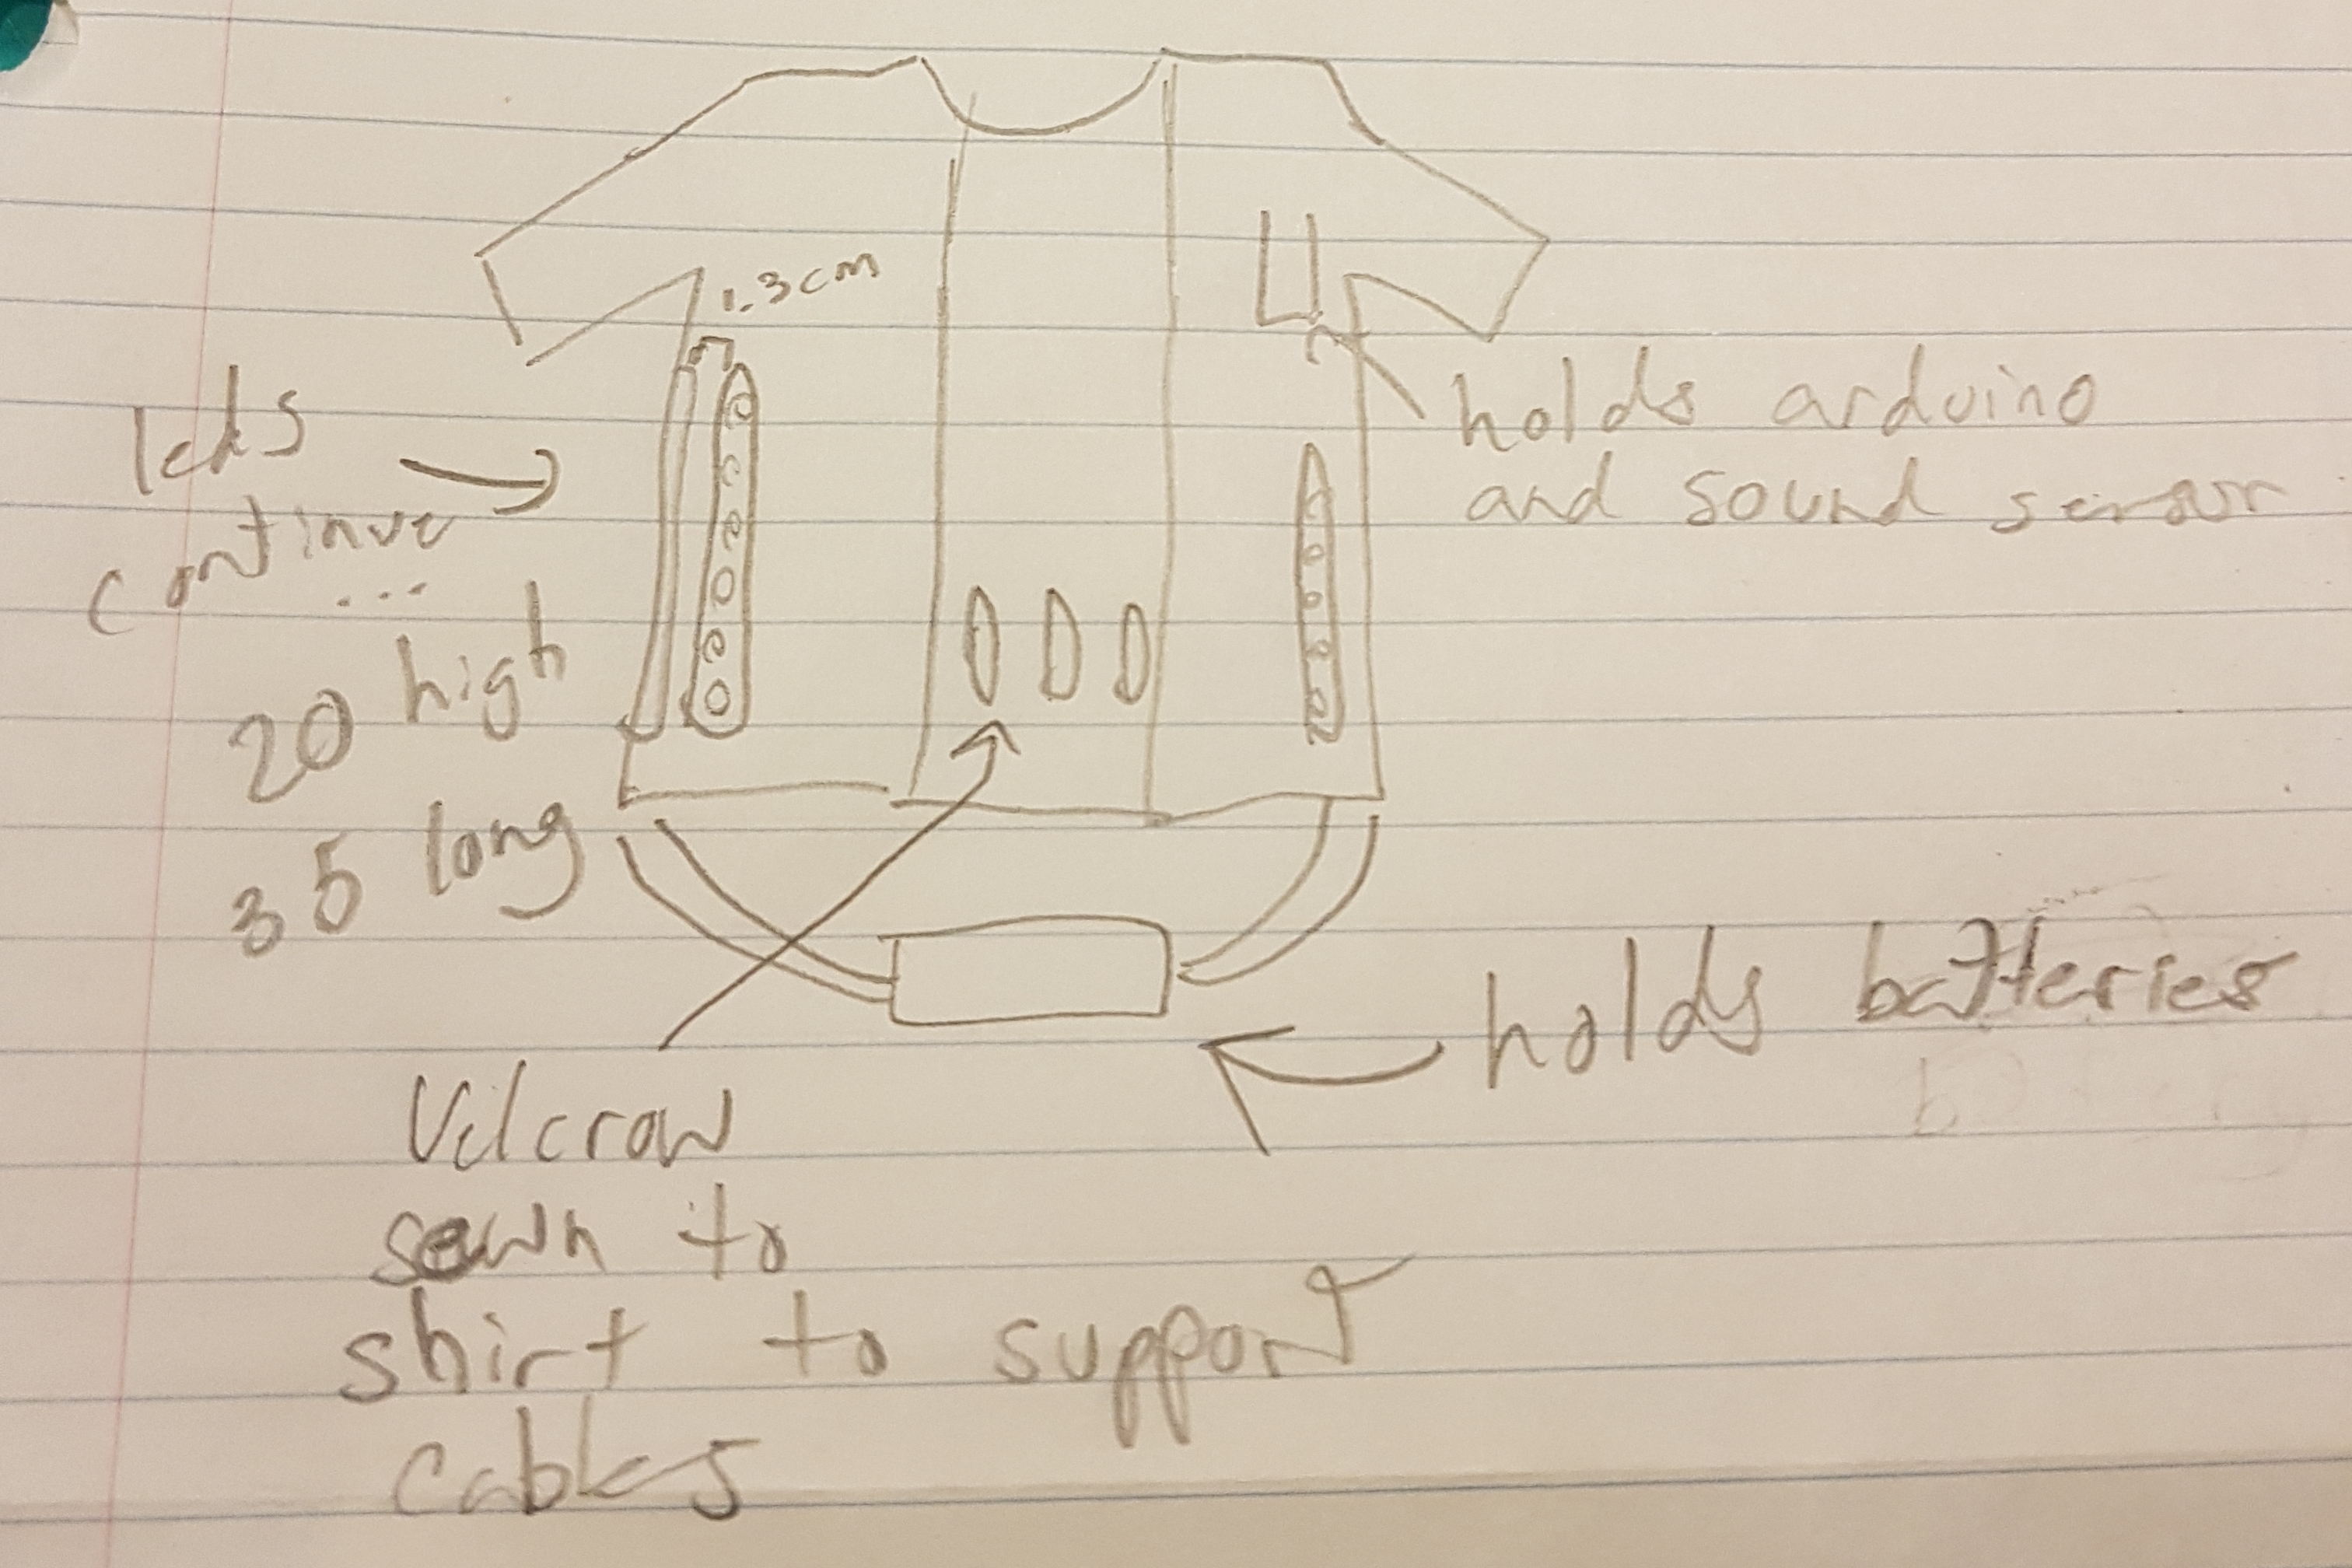 1.3cm
leds
continue
...
20 high
35 long
holds arduino
and sound sensor
holds batteries
Velcrow
sewn to
shirt to support
cables